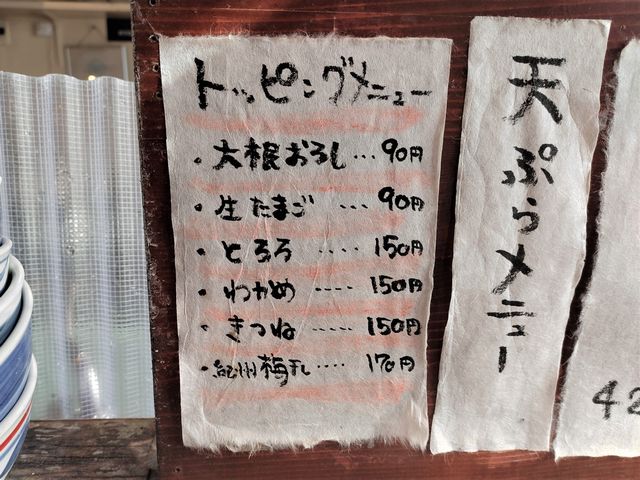 トッピングメニュー
・大根おろし…90円
・生たまご …90円
・とろろ ….150円
・わかめ ….150円
・きつね …..150円
・紀州梅干し….170円
天ぷらメニュー
42